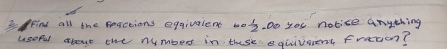 3. Find all the Feactions equivalent to ½. Do you notice anything
useful about the number in these equivalent Fraction?